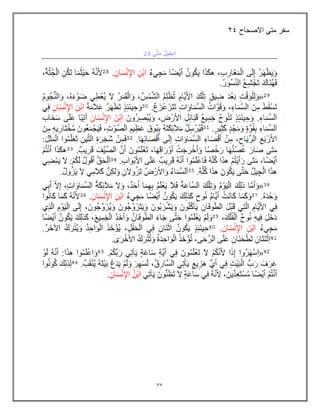 سفر متي الاصحاح ٢٤
إنجيل متى 24
وَيَظْهَرُ إِلَى الْمَغَارِبِ، هكَذَا يَكُونُ أَيْضًا مَجِيءُ ابْنِ الإِنْسَانِ. 28لأَنَّهُ حَيْثُمَا تَكُنِ الْجُثَّةُ،
فَهُنَاكَ تَجْتَمِعُ النُّسُورُ.
29«وَلِلْوَقْتِ بَعْدَ ضِيقِ تِلْكَ الأَيَّامِ تُظْلِمُ الشَّمْسُ، وَالْقَمَرُ لاَ يُعْطِي ضَوْءَهُ، وَالنُّجُومُ
تَسْقُطُ مِنَ السَّمَاءِ، وَقُوَّاتُ السَّمَاوَاتِ تَتَزَعْزَعُ. 30وَحِينَئِذٍ تَظْهَرُ عَلاَمَةُ ابْنِ الإِنْسَانِ فِي
السَّمَاءِ. وَحِينَئِذٍ تَنُوحُ جَمِيعُ قَبَائِلِ الأَرْضِ، وَيُبْصِرُونَ ابْنَ الإِنْسَانِ آتِيًا عَلَى سَحَابِ
السَّمَاءِ بِقُوَّةٍ وَمَجْدٍ كَثِيرٍ. 31فَيُرْسِلُ مَلاَئِكَتَهُ بِبُوق عَظِيمِ الصَّوْتِ، فَيَجْمَعُونَ مُخْتَارِيهِ مِنَ
الأَرْبَعِ الرِّيَاحِ، مِنْ أَقْصَاءِ السَّمَاوَاتِ إِلَى أَقْصَائِهَا. 32فَمِنْ شَجَرَةِ التِّينِ تَعَلَّمُوا الْمَثَلَ:
مَتَى صَارَ غُصْنُهَا رَخْصًا وَأَخْرَجَتْ أَوْرَاقَهَا، تَعْلَمُونَ أَنَّ الصَّيْفَ قَرِيبٌ. 33هكَذَا أَنْتُمْ
أَيْضًا، مَتَى رَأَيْتُمْ هذَا كُلَّهُ فَاعْلَمُوا أَنَّهُ قَرِيبٌ عَلَى الأَبْوَابِ. 34اَلْحَقَّ أَقُولُ لَكُمْ: لاَ يَمْضِي
هذَا الْجِيلُ حَتَّى يَكُونَ هذَا كُلُّهُ. 35اَلسَّمَاءُ وَالأَرْضُ تَزُولاَنِ وَلكِنَّ كَلاَمِي لاَ يَزُولُ.
36وَأَمَّا ذلِكَ الْيَوْمُ وَتِلْكَ السَّاعَةُ فَلاَ يَعْلَمُ بِهِمَا أَحَدٌ، وَلاَ مَلاَئِكَةُ السَّمَاوَاتِ، إِلاَّ أَبِي
وَحْدَهُ. 37وَكَمَا كَانَتْ أَيَّامُ نُوحٍ كَذلِكَ يَكُونُ أَيْضًا مَجِيءُ ابْنِ الإِنْسَانِ. 38لأَنَّهُ كَمَا كَانُوا
فِي الأَيَّامِ الَّتِي قَبْلَ الطُّوفَانِ يَأْكُلُونَ وَيَشْرَبُونَ وَيَتَزَوَّجُونَ وَيُزَوِّجُونَ، إِلَى الْيَوْمِ الَّذِي
دَخَلَ فِيهِ نُوحٌ الْفُلْكَ، 39وَلَمْ يَعْلَمُوا حَتَّى جَاءَ الطُّوفَانُ وَأَخَذَ الْجَمِيعَ، كَذلِكَ يَكُونُ أَيْضًا
مَجِيءُ ابْنِ الإِنْسَانِ. 40حِينَئِذٍ يَكُونُ اثْنَانِ فِي الْحَقْلِ، يُؤْخَذُ الْوَاحِدُ وَيُتْرَكُ الآخَرُ.
41اِثْنَتَانِ تَطْحَنَانِ عَلَى الرَّحَى، تُؤْخَذُ الْوَاحِدَةُ وَتُتْرَكُ الأُخْرَى.
42«اِسْهَرُوا إِذًا لأَنَّكُمْ لاَ تَعْلَمُونَ فِي أَيَّةِ سَاعَةٍ يَأْتِي رَبُّكُمْ. 43وَاعْلَمُوا هذَا: أَنَّهُ لَوْ
عَرَفَ رَبُّ الْبَيْتِ فِي أَيِّ هَزِيعٍ يَأْتِي السَّارِقُ، لَسَهِرَ وَلَمْ يَدَعْ بَيْتَهُ يُنْقَبُ. 44لِذلِكَ كُونُوا
أَنْتُمْ أَيْضًا مُسْتَعِدِّينَ، لأَنَّهُ فِي سَاعَةٍ لاَ تَظُنُّونَ يَأْتِي ابْنُ الإِنْسَانِ.